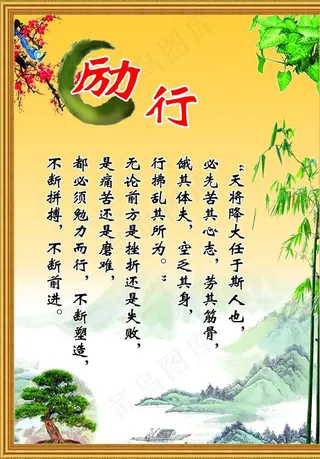 励行
“天将降大任于斯人也，
必先苦其心志，劳其筋骨，
饿其体夫，空乏其身，
行拂乱其所为。”
无论前方是挫折还是失败，
是痛苦还是磨难，
都必须勉力而行，不断塑造，
不断拼搏，不断前进。